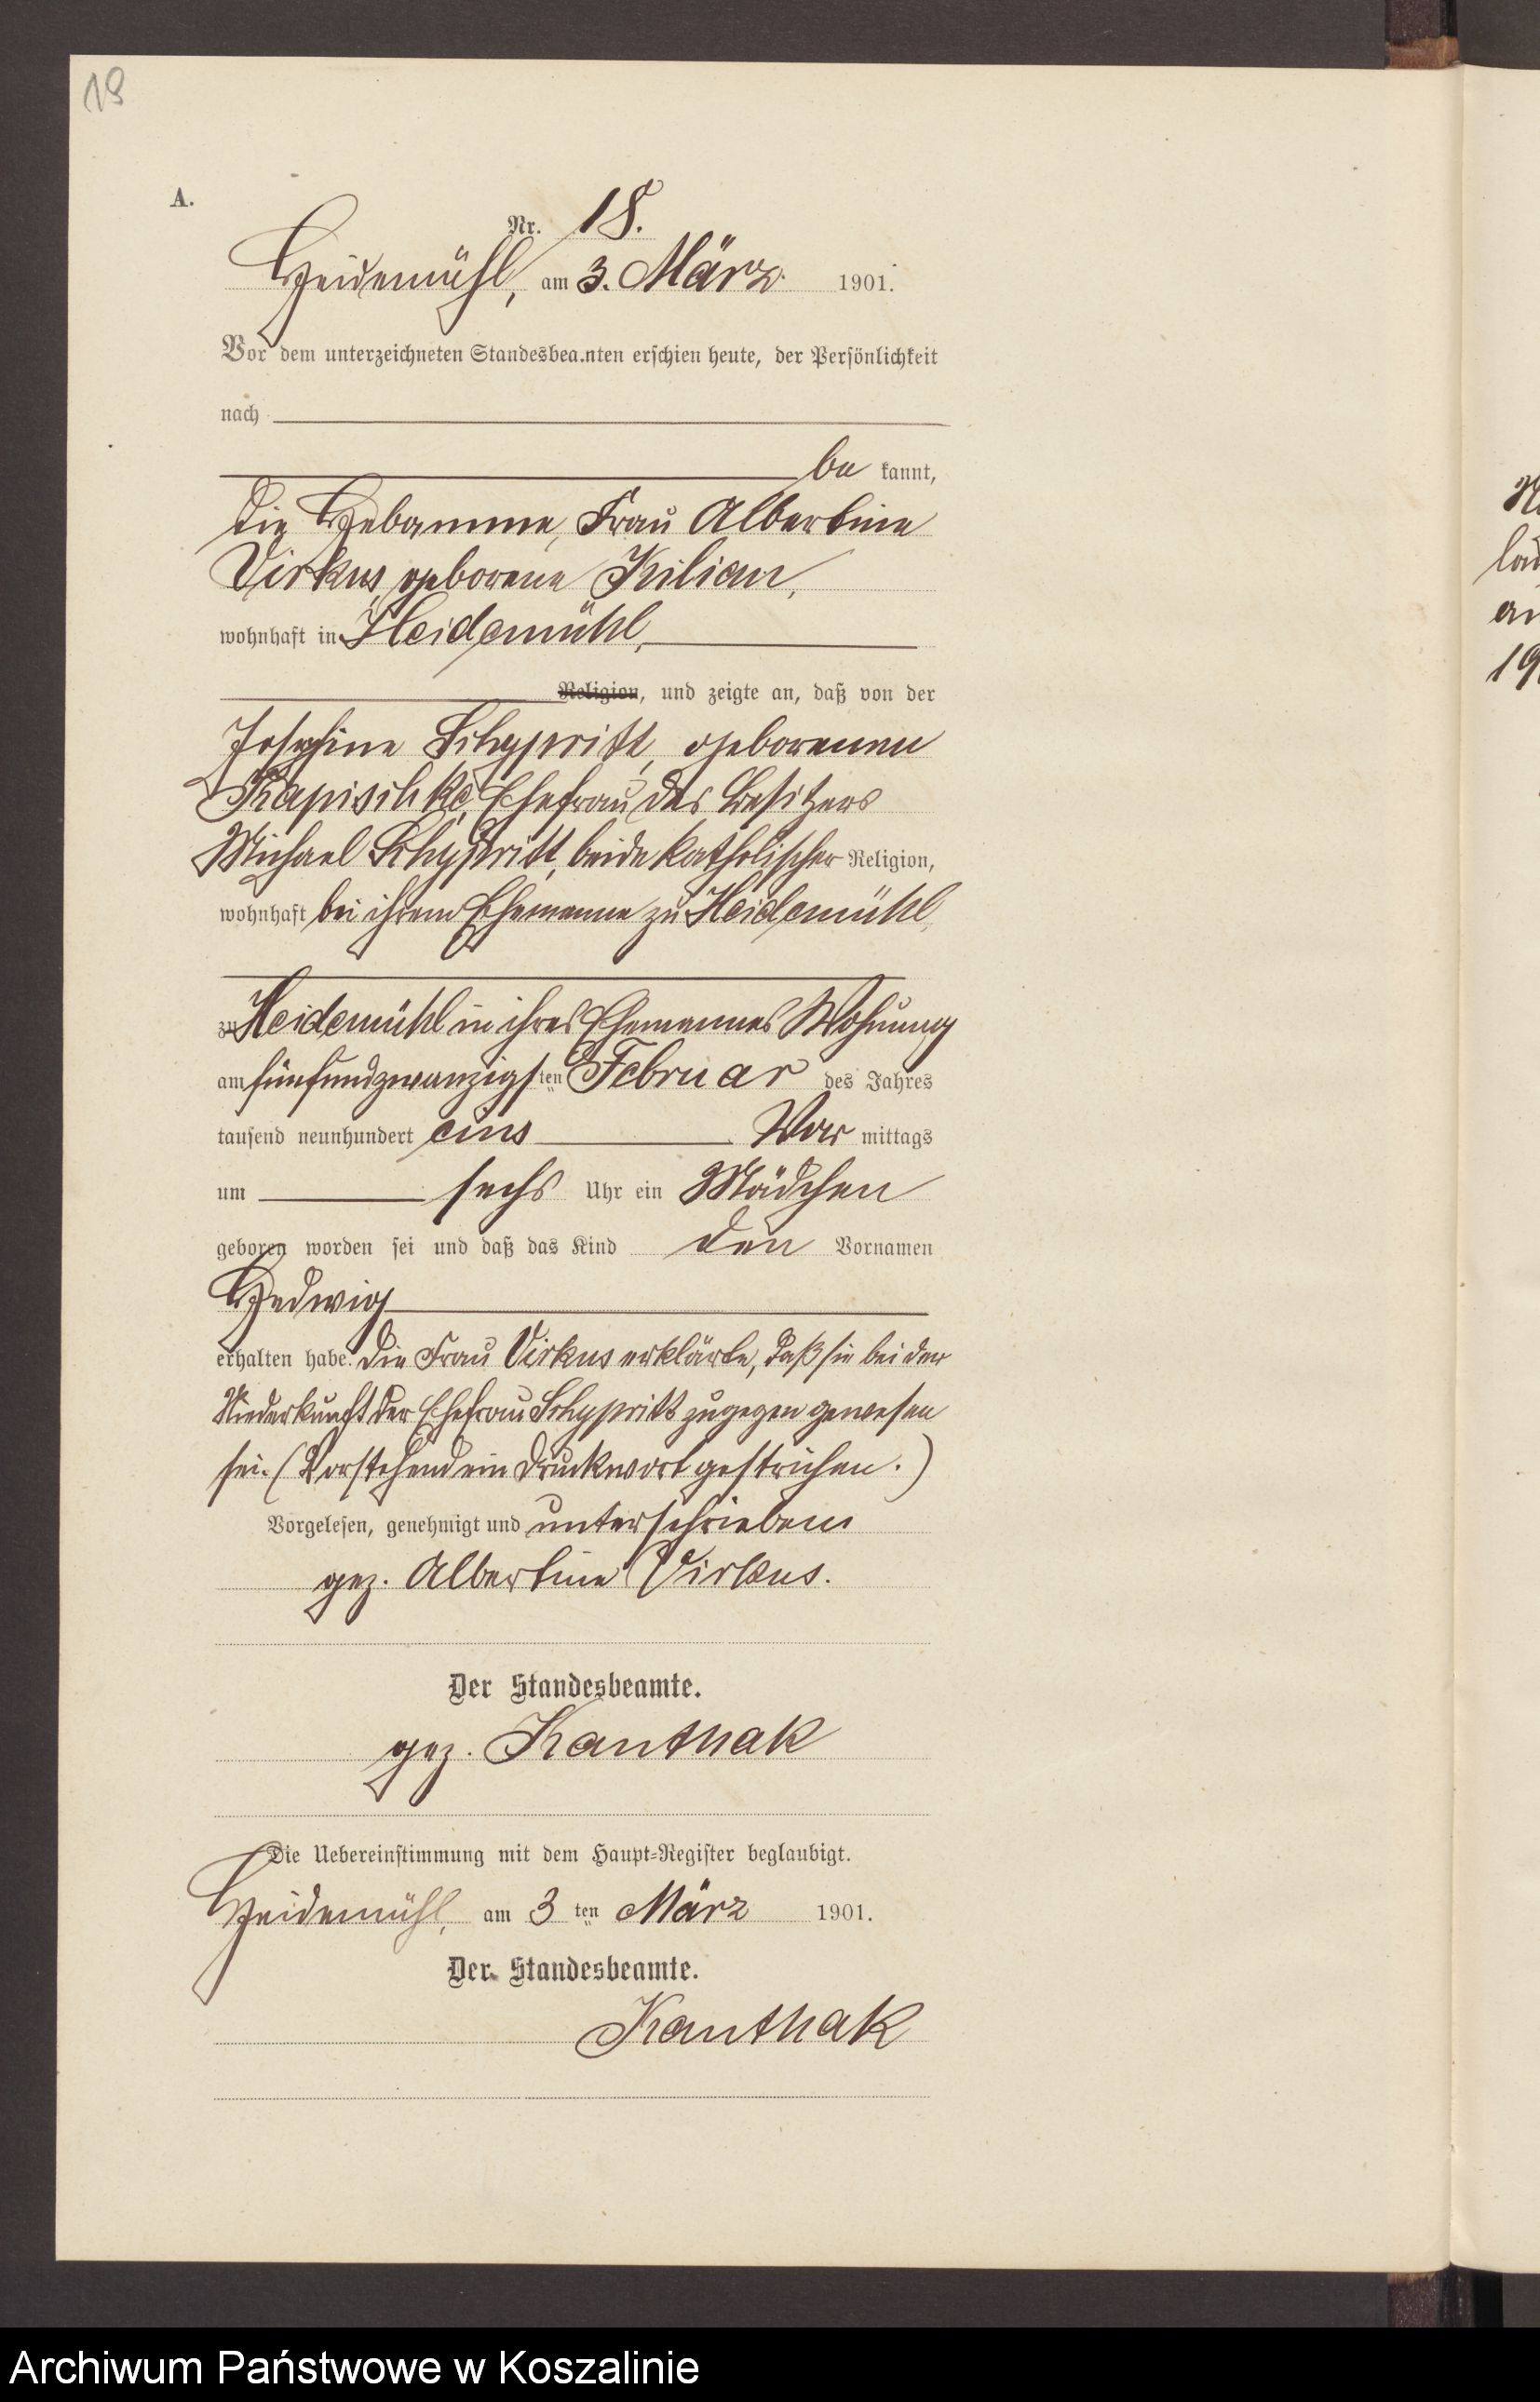 19
A.
Nr. 18.
Heidemühl, am 3. März 1901.
Vor dem unterzeichneten Standesbeamten erschien heute, der Persönlichkeit
nach
be kannt,
die Hebamme, Frau Albertine
Virkus, geborene Kilian,
wohnhaft in Heidemühl,
Religion, und zeigte an, daß von der
Josephine Schypritt, geborenen
Kapischke, Ehefrau des Besitzers
Michael Schypritt, beide katholischer Religion,
wohnhaft bei ihrem Ehemanne zu Heidemühl,
zu Heidemühl in ihres Ehemannes Wohnung
am fünfundzwanzigsten Februar des Jahres
tausend neunhundert eins Vor mittags
um sechs Uhr ein Mädchen
geboren worden sei und daß das Kind den Vornamen
Hedwig
erhalten habe. Die Frau Virkus erklärte, daß sie bei der
Niederkunft der Ehefrau Schypritt zugegen gewesen
sei. (Vorstehend ein Druckwort gestrichen.)
Vorgelesen, genehmigt und unterschrieben
gez. Albertine Virkus.
Der Standesbeamte.
gez. Kanthak
Die Uebereinstimmung mit dem Haupt-Register beglaubigt.
Heidemühl, am 3 ten März 1901.
Der Standesbeamte.
Kanthak
Archiwum Państwowe w Koszalinie